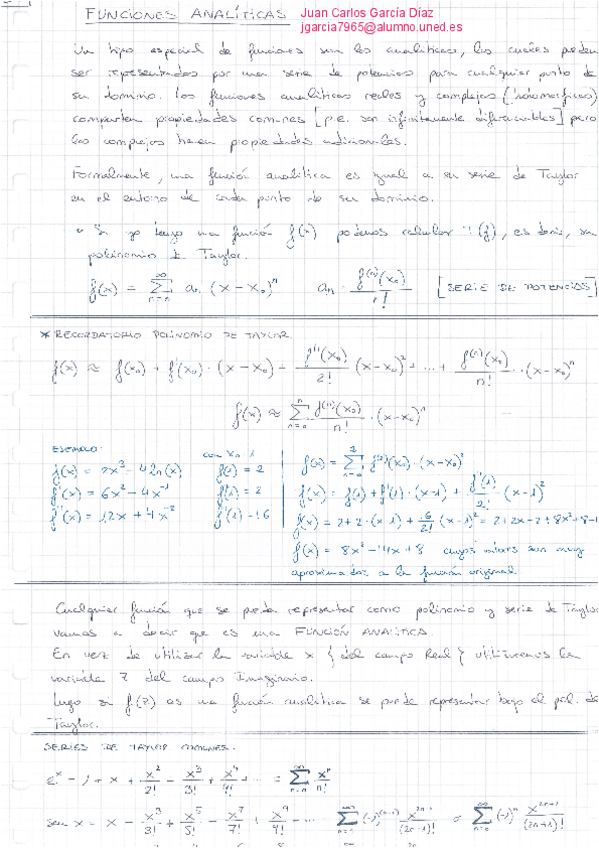 FUNCIONES ANALÍTICAS Juan Carlos García Díaz
jgarcia7965@alumno.uned.es
Un tipo especial de funciones son las analíticas, las cuales pueden
ser representadas por una serie de potencias para cualquier punto de
su dominio. Las funciones analíticas reales y complejas (holomorficas)
comparten propiedades comunes [p.e. son infinitamente diferenciables] pero
las complejas tienen propiedades adicionales.
Formalmente, una función analítica es igual a su serie de Taylor
en el entorno de cada punto de su dominio.
• Si yo tengo una función f(x) podemos calcular T(f), es decir, su
polinomio de Taylor.
f(x) = ∑_{n=n}^{∞} aₙ (x - x₀)ⁿ aₙ = f⁽ⁿ⁾(x₀)/n! [SERIE DE POTENCIAS]
* RECORDATORIO POLINOMIO DE TAYLOR
f(x) ≈ f(x₀) + f'(x₀) · (x - x₀) + f''(x₀)/2! (x - x₀)² + ... + f⁽ⁿ⁾(x₀)/n! · (x - x₀)ⁿ
f(x) ≈ ∑ f⁽ⁿ⁾(x₀)/n! · (x - x₀)ⁿ
EJEMPLO: con x₀ = 1
f(x) = 2x³ - 4Ln(x) f(1) = 2
f'(x) = 6x² - 4x⁻¹ f'(1) = 2
f''(x) = 12x + 4x⁻² f''(1) = 16
f(x) = ∑ f⁽ⁿ⁾(x₀) · (x - x₀)²
f(x) = f(1) + f'(1) · (x-1) + f''(1)/2! · (x-1)²
f(x) = 2 + 2·(x-1) + 16/2! (x-1)² = 2+2x-2+8x²+8-1
f(x) = 8x² - 14x + 8 cuyos valores son muy
aproximados a la función original
Cualquier función que se pueda representar como polinomio y serie de Taylor
vamos a decir que es una FUNCIÓN ANALÍTICA.
En vez de utilizar la variable x {del campo Real} utilizaremos la
variable Z del campo Imaginario.
Luego si f(z) es una función analítica se puede representar bajo el pol. de
Taylor.
SERIES DE TAYLOR COMUNES.
eˣ = 1 + x + x²/2! - x³/3! + x⁴/4! ... = ∑ xⁿ/n!
sen x = x - x³/3! + x⁵/5! - x⁷/7! + x⁹/9! - ... ∑ (-1)⁽ⁿ⁻¹⁾ x²ⁿ⁻¹/(2n-1)! o ∑ (-1)ⁿ x²ⁿ⁺¹/(2n+1)!